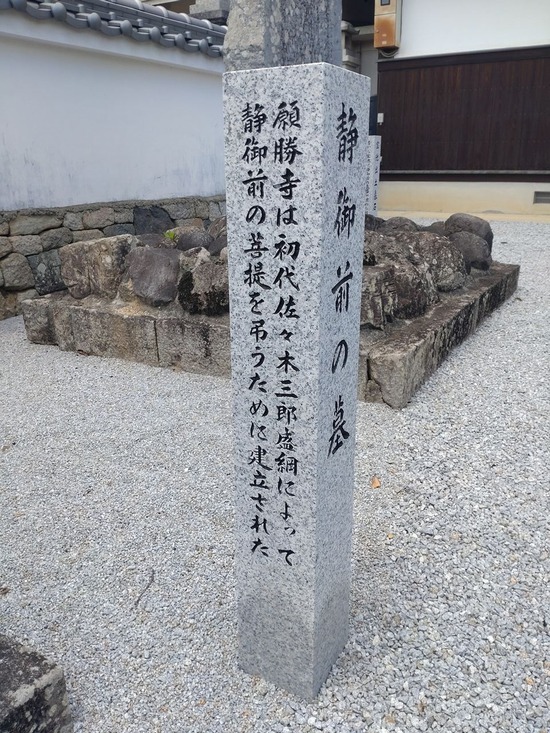 静御前の墓
願勝寺は初代佐々木三郎盛綱によって
静御前の菩提を弔うために建立された